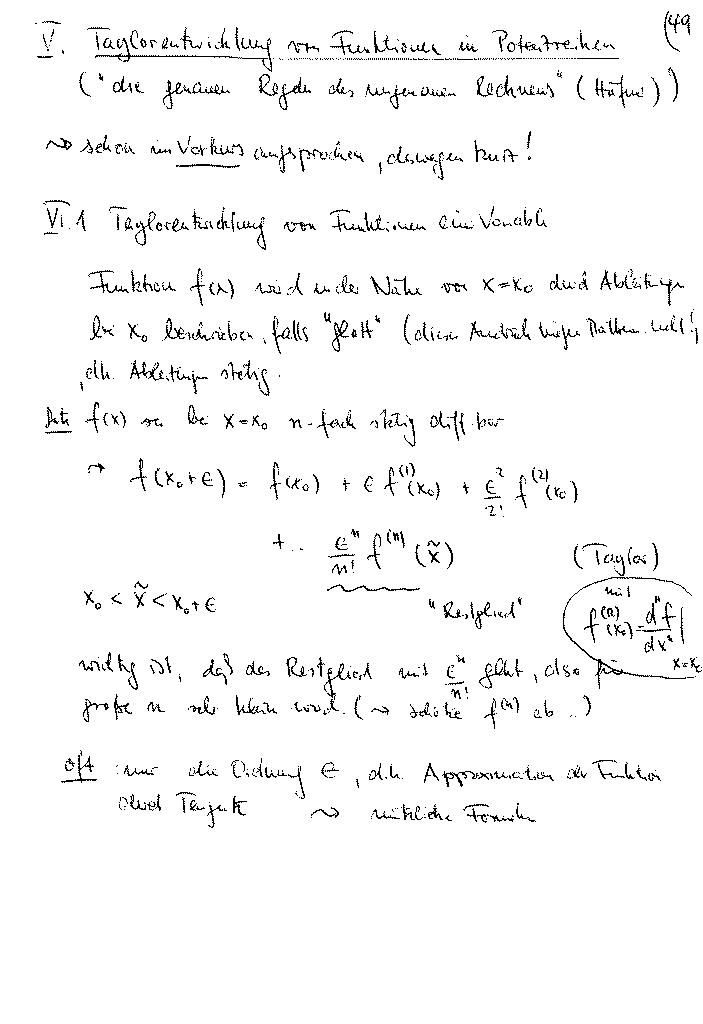 (49
V. Taylorentwicklung von Funktionen in Potenzreihen
("die genauen Regeln des ungenauen Rechnens" (Hüfner))
~> schon im Vorkurs angesprochen, deswegen kurz!
V.1 Taylorentwicklung von Funktionen einer Variable
Funktion f(x) wird in der Nähe von x=x₀ durch Ableitungen
bei x₀ beschrieben, falls "glatt" (diesen Ausdruck mögen Mathem. nicht!)
, d.h. Ableitungen stetig.
f(x) sei bei x=x₀ n-fach stetig diff.bar
→ f(x₀+ε) = f(x₀) + ε f⁽¹⁾(x₀) + ε²/2! f⁽²⁾(x₀)
+ .. εⁿ/n! f⁽ⁿ⁾(x̃) (Taylor)
x₀ < x̃ < x₀+ε "Restglied"
mit
f⁽ⁿ⁾(x₀) = dⁿf/dxⁿ |x=x₀
wichtig ist, daß das Restglied mit εⁿ/n! geht, also für
große n sehr klein wird. (~> schätze f⁽ⁿ⁾ ab ..)
oft : nur die Ordnung ε, d.h. Approximation der Funktion
durch Tangente ~> nützliche Formeln